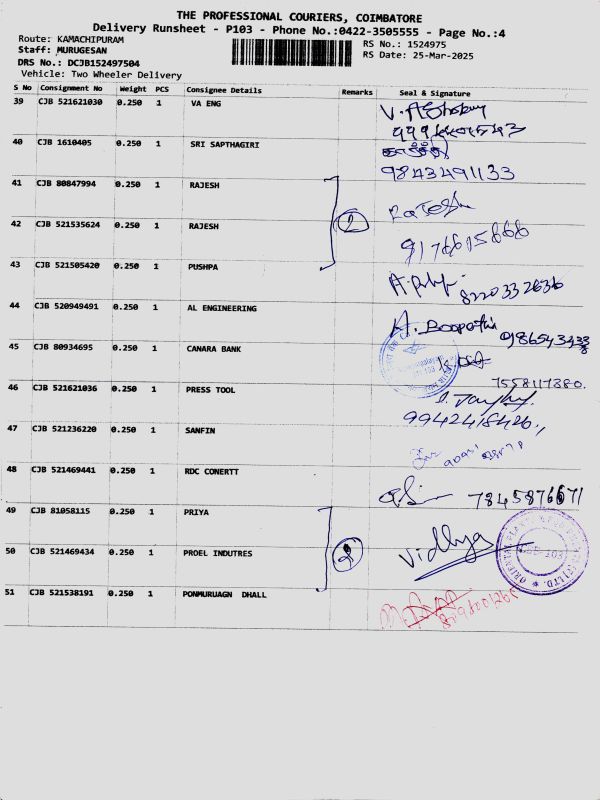 THE PROFESSIONAL COURIERS, COIMBATORE
Delivery Runsheet - P103 - Phone No.:0422-3505555 - Page No.:4
Route: KAMACHIPURAM
RS No.: 1524975
Staff: MURUGESAN
RS Date: 25-Mar-2025
DRS No.: DCJB152497504
Vehicle: Two Wheeler Delivery
S No Consignment No Weight PCS Consignee Details Remarks Seal & Signature
39 CJB 521621030 0.250 1 VA ENG
40 CJB 1610405 0.250 1 SRI SAPTHAGIRI
9843491133
41 CJB 80847994 0.250 1 RAJESH
42 CJB 521535624 0.250 1 RAJESH
2
9176615666
43 CJB 521505420 0.250 1 PUSHPA
8220332636
44 CJB 520949491 0.250 1 AL ENGINEERING
A. Boopathi
45 CJB 80934695 0.250 1 CANARA BANK
7558117380.
46 CJB 521621036 0.250 1 PRESS TOOL
9942418426.,
47 CJB 521236220 0.250 1 SANFIN
48 CJB 521469441 0.250 1 RDC CONERTT
7845876671
49 CJB 81058115 0.250 1 PRIYA
2
Vidhya
50 CJB 521469434 0.250 1 PROEL INDUTRES
51 CJB 521538191 0.250 1 PONMURUAGN DHALL